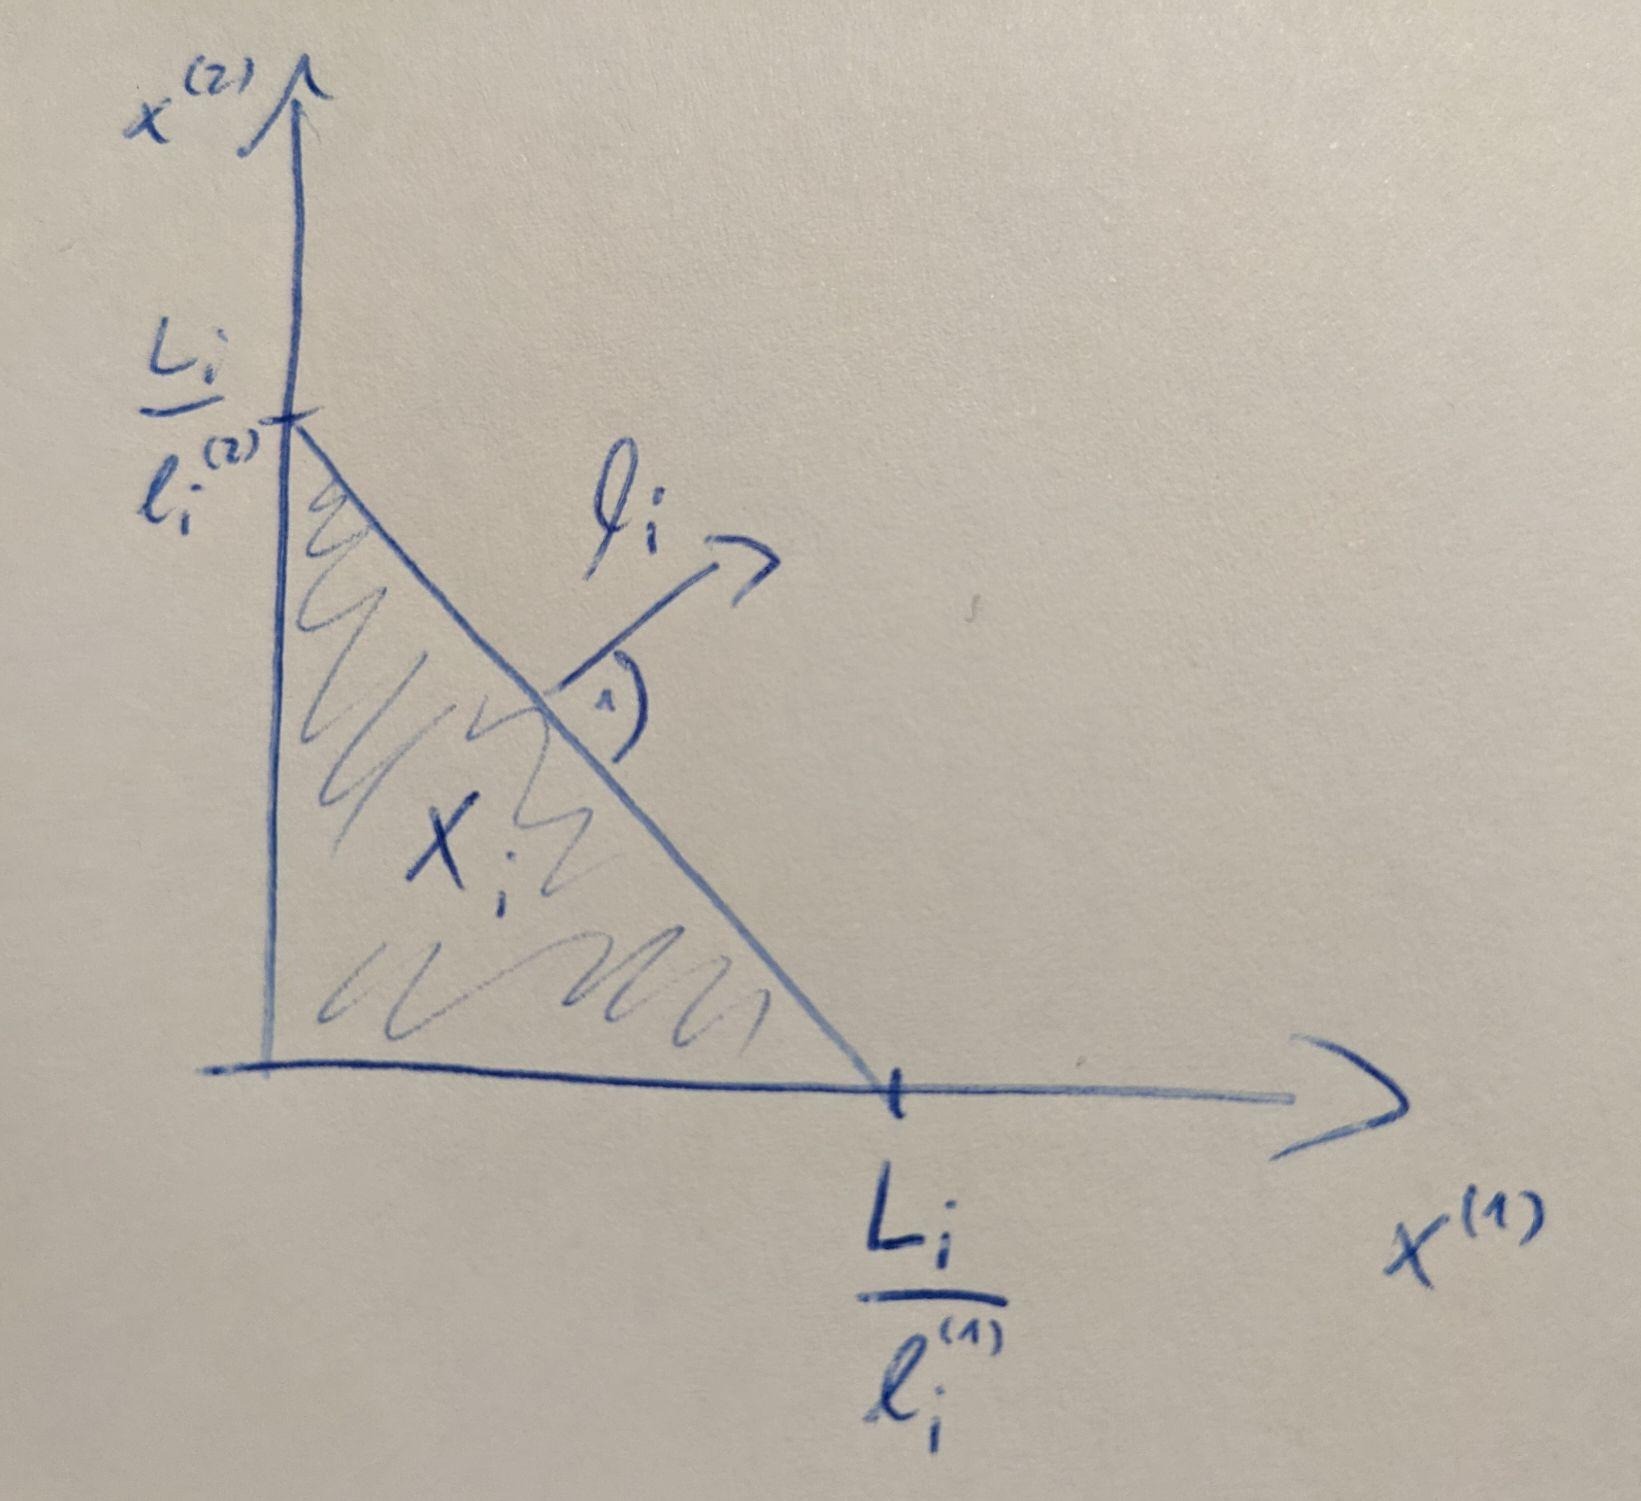 x⁽²⁾
Lᵢ
lᵢ⁽²⁾
lᵢ
Xᵢ
Lᵢ
lᵢ⁽¹⁾
x⁽¹⁾